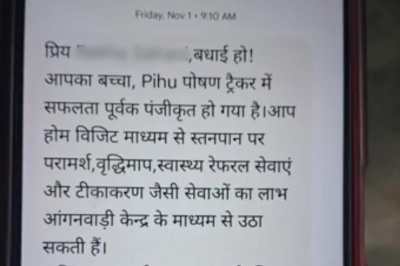 Friday, Nov 1 • 9:10 AM
प्रिय ,बधाई हो!
आपका बच्चा, Pihu पोषण ट्रैकर में
सफलता पूर्वक पंजीकृत हो गया है।आप
होम विजिट माध्यम से स्तनपान पर
परामर्श,वृद्धिमाप,स्वास्थ्य रेफरल सेवाएं
और टीकाकरण जैसी सेवाओं का लाभ
आंगनवाड़ी केन्द्र के माध्यम से उठा
सकती हैं।